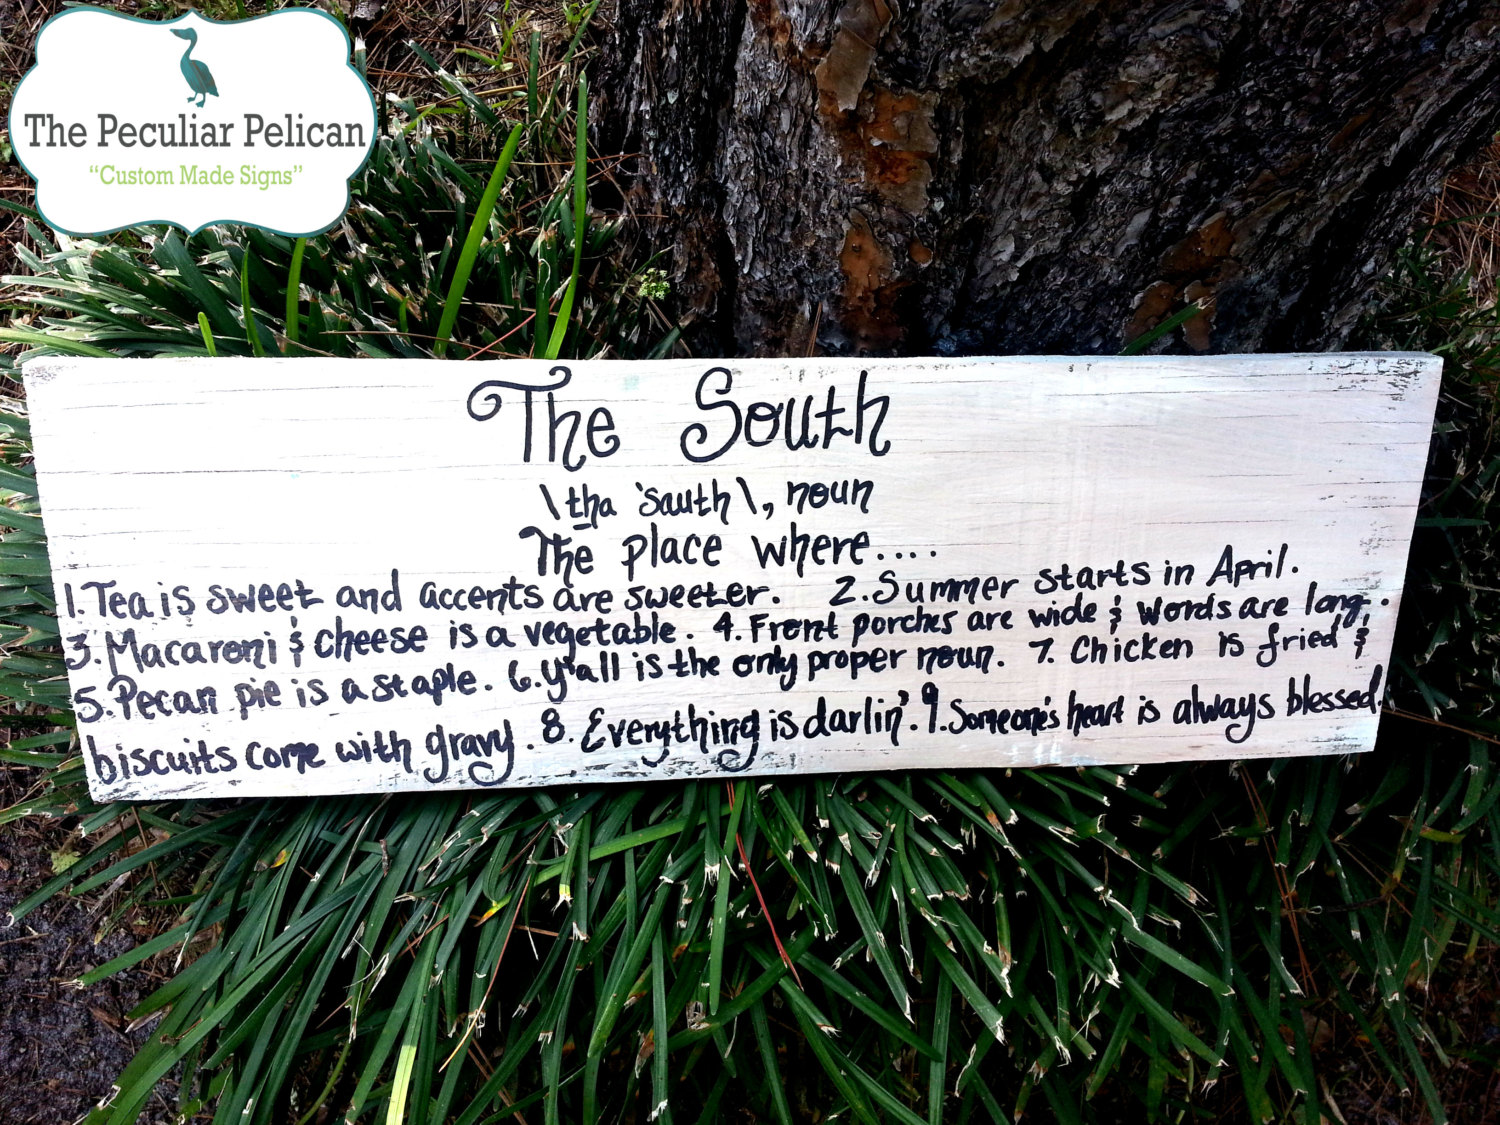 The Peculiar Pelican
“Custom Made Signs”
The South
\tha 'sauth\, noun
The place where....
1. Tea is sweet and accents are sweeter. 2. Summer starts in April.
3. Macaroni & cheese is a vegetable. 4. Front porches are wide & words are long.
5. Pecan pie is a staple. 6. Y'all is the only proper noun. 7. Chicken is fried &
biscuits come with gravy. 8. Everything is darlin'. 9. Someone's heart is always blessed.